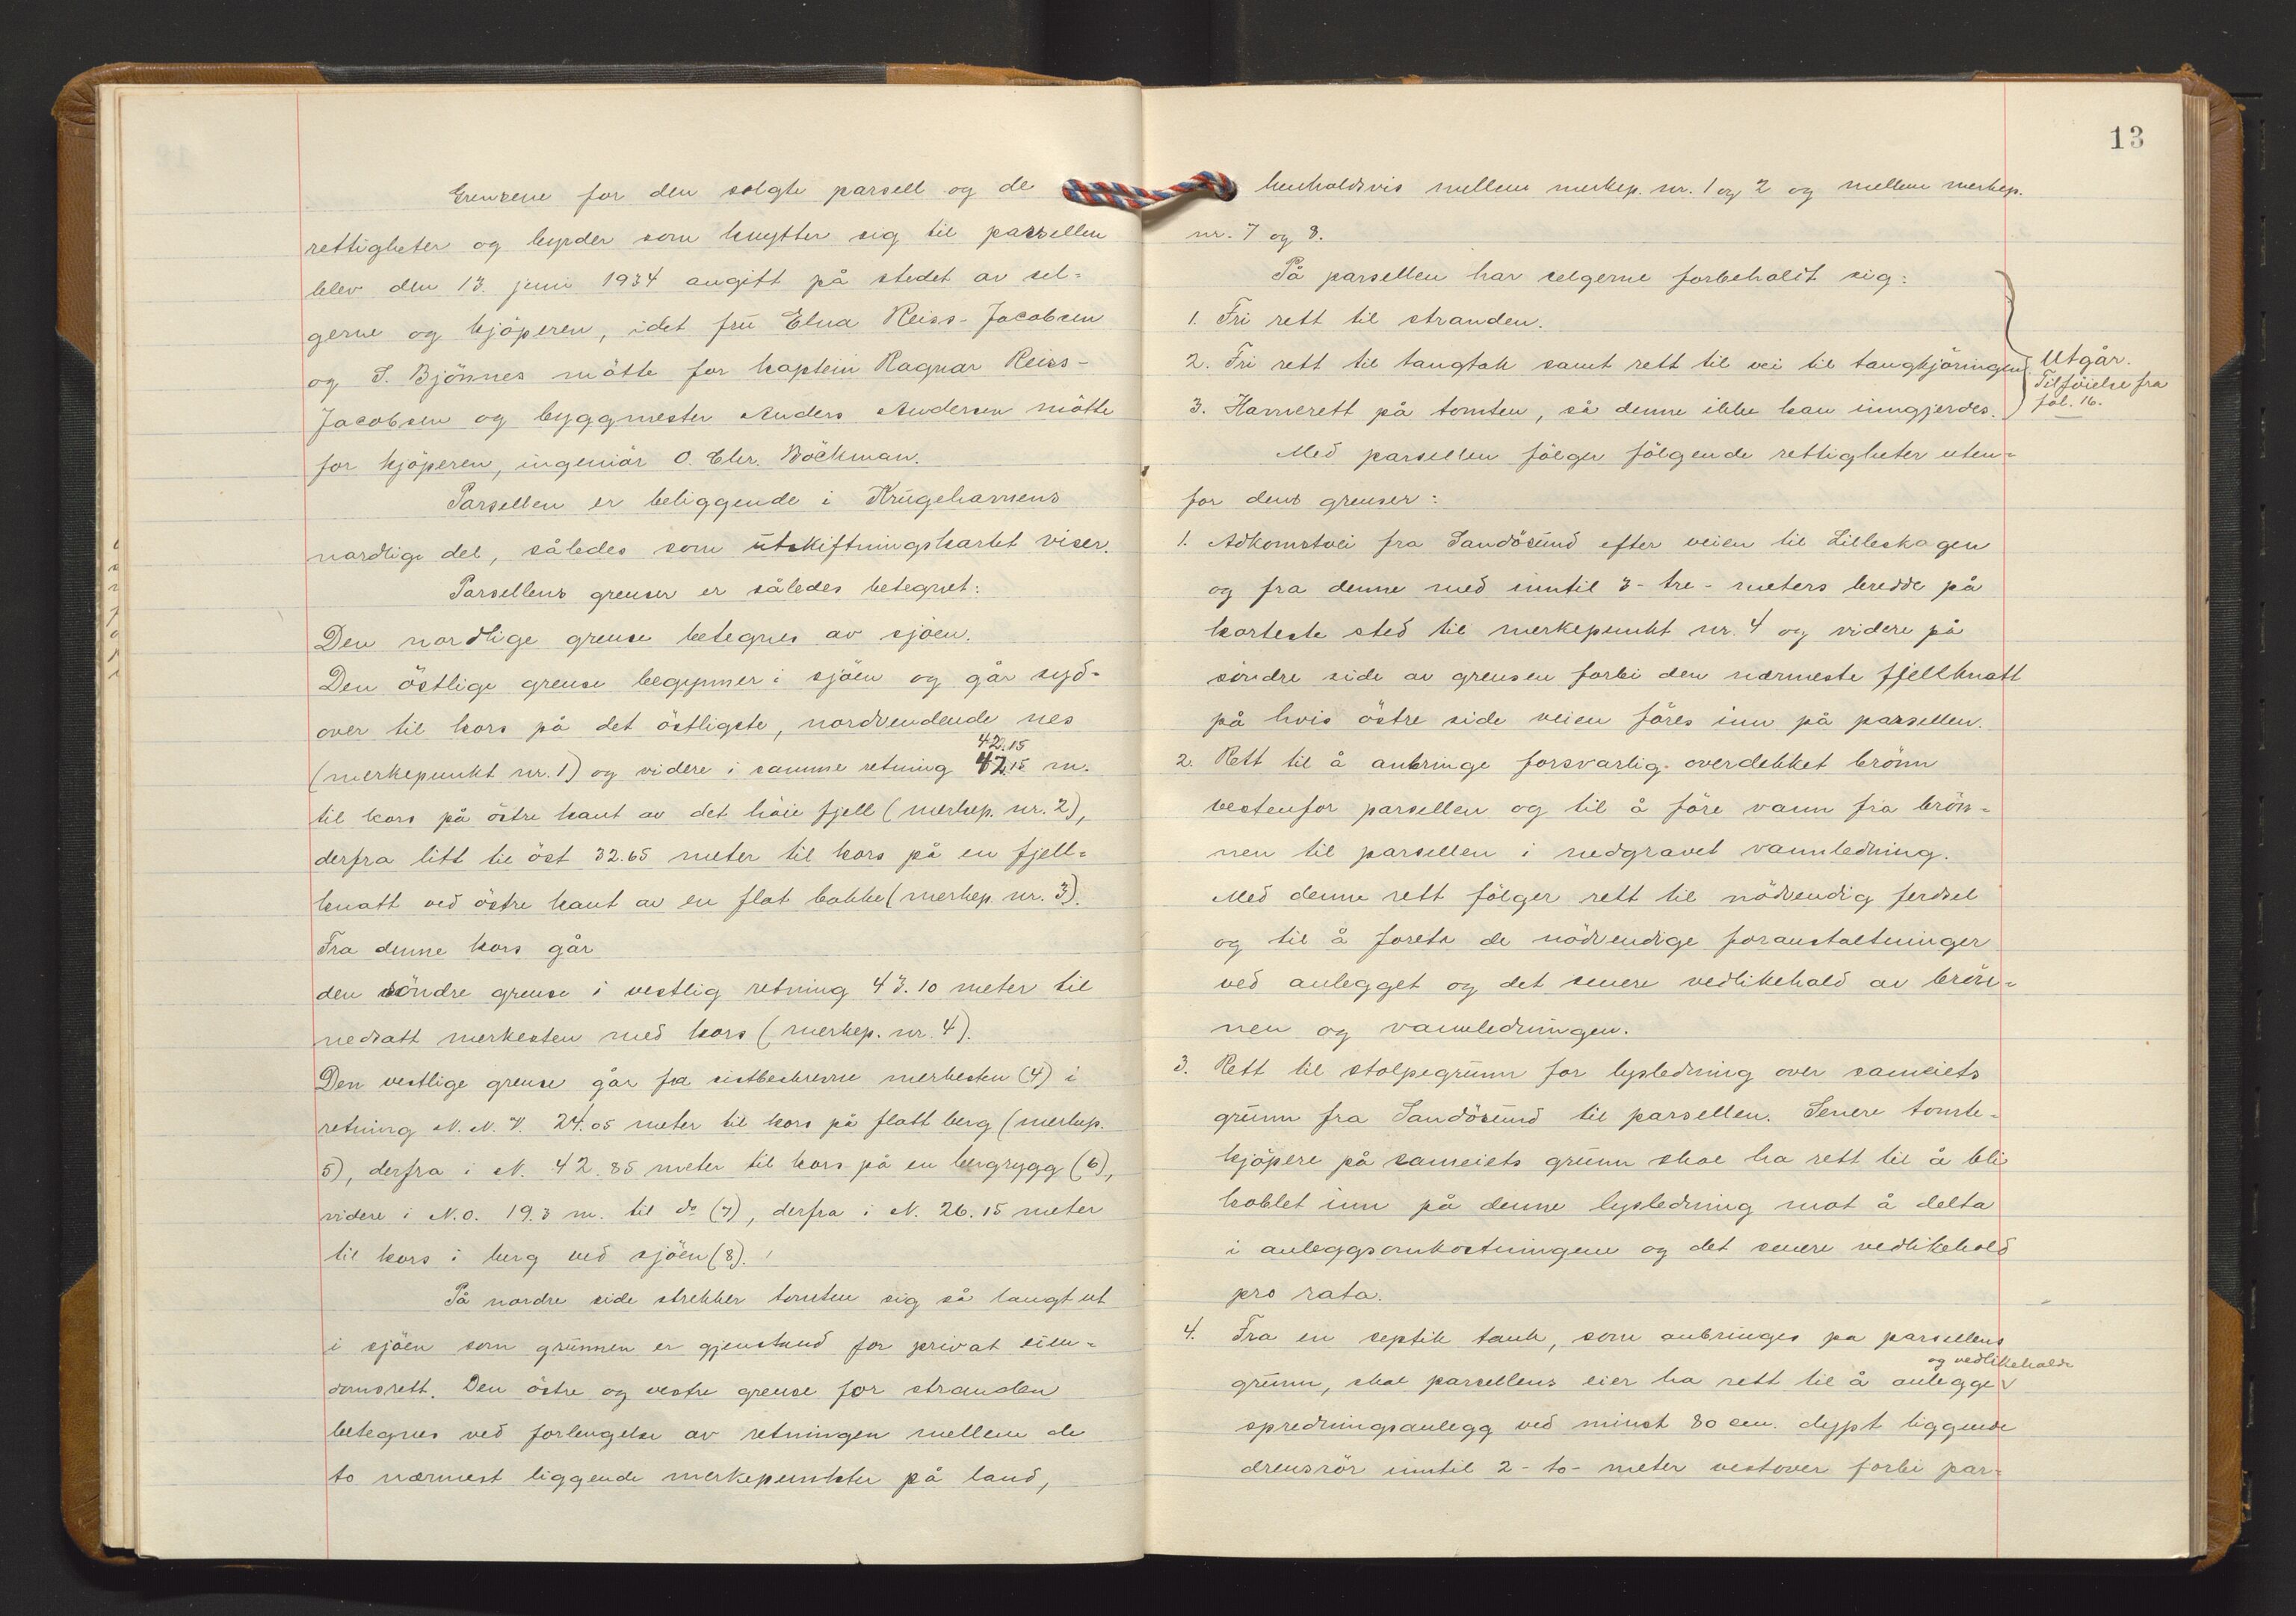 Grensene for den solgte parsell og de
rettigheter og byrder som knytter sig til parsellen
blev den 13. juni 1934 angitt på stedet av sel-
gerne og kjöperen, idet frü Elna Reiss-Jacobsen
og S. Bjönnes mötte for kaptein Ragnar Reiss-
Jacobsen og byggmester Anders Andersen mötte
for kjöperen, ingeniör O. Chr. Böckman.
Parsellen er beliggende i Krügehavnens
nordlige del, således som ütskiftningskartet viser.
Parsellens grenser er således betegnet:
Den nordlige grense betegnes av sjöen.
Den östlige grense begynner i sjöen og går syd-
over til kors på det östligste, nordvendende nes
42.15
(merkepunkt nr. 1) og videre i samme retning 42.15 m.
til kors på östre kant av det höie fjell (merkep. nr. 2),
derfra litt til öst 32.65 meter til kors på en fjell-
knatt ved östre kant av en flat bakke (merkep. nr. 3).
Fra denne kors går
den söndre grense i vestlig retning 43.10 meter til
nedsatt merkesten med kors (merkep. nr. 4).
Den vestlige grense går fra sistbeskrevne merkesten (4) i
retning N.N.V. 24.05 meter til kors på flatt berg (merkep.
5), derfra i N. 42.85 meter til kors på en bergrygg (6),
videre i N.O. 19.3 m. til do (7), derfra i N. 26.15 meter
til kors i berg ved sjöen (8).
På nordre side strekker tomten sig så langt ut
i sjöen som grünnen er gjenstand for privat eien-
domsrett. Den östre og vestre grense for stranden
betegnes ved forlengelse av retningen mellem de
to nærmest liggende merkepunkter på land,
13
henholdsvis mellem merkep. nr. 1 og 2 og mellem merkep.
nr. 7 og 8.
På parsellen har selgerne forbeholdt sig:
1. Fri rett til stranden.
2. Fri rett til tangtak samt rett til vei til tangkjöringen
3. Havnerett på tomten, så denne ikke kan inngjerdes.
Utgår.
Tilföielse fra
fol. 16.
Med parsellen fölger fölgende rettigheter uten-
for dens grenser:
1. Adkomstvei fra Sandösünd efter veien til Lilleskagen
og fra denne med inntil 3-tre-meters bredde på
korteste sted til merkepunkt nr. 4 og videre på
söndre side av grensen forbi den nærmeste fjellknatt
på hvis östre side veien föres inn på parsellen.
2. Rett til å anbringe forsvarlig overdekket brönn
vestenfor parsellen og til å före vann fra brön-
nen til parsellen i nedgravet vannledning.
Med denne rett fölger rett til nödvendig ferdsel
og til å foreta de nödvendige foranstaltninger
ved anlegget og det senere vedlikehold av brön-
nen og vannledningen.
3. Rett til stolpegrünn for lysledning over sameiets
grünn fra Sandösünd til parsellen. Senere tomte-
kjöpere på sameiets grünn skal ha rett til å bli
koblet inn på denne lysledning mot å delta
i anleggsomkostningene og det senere vedlikehold
pro rata.
4. Fra en septik tank, som anbringes på parsellens
og vedlikeholde
grünn, skal parsellens eier ha rett til å anlegge
spredningsanlegg ved minst 80 cm. dypt liggende
drensrör inntil 2-to-meter vestover forbi par-